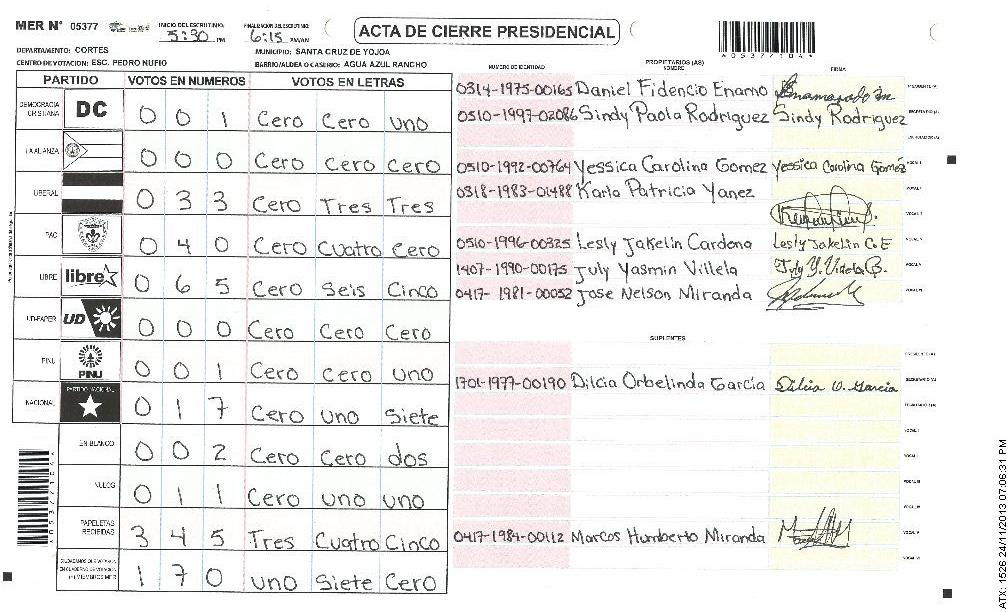 MER Nº 05377
INICIO DEL ESCRUTINIO: 5:30 PM
FINALIZACION DEL ESCRUTINIO: 6:15 PM/AM
ACTA DE CIERRE PRESIDENCIAL
A053771044
DEPARTAMENTO: CORTES
MUNICIPIO: SANTA CRUZ DE YOJOA
CENTRO DE VOTACION: ESC. PEDRO NUFIO
BARRIO/ALDEA O CASERIO: AGUA AZUL RANCHO
PARTIDO VOTOS EN NUMEROS VOTOS EN LETRAS
DEMOCRACIA CRISTIANA DC 0 0 1 Cero Cero uno
LA ALIANZA 0 0 0 Cero Cero Cero
LIBERAL 0 3 3 Cero Tres Tres
PAC 0 4 0 Cero Cuatro Cero
LIBRE libre 0 6 5 Cero Seis Cinco
UD-FAPER UD 0 0 0 Cero Cero Cero
PINU PINU 0 0 1 Cero Cero uno
NACIONAL PARTIDO NACIONAL 0 1 7 Cero uno Siete
EN BLANCO 0 0 2 Cero Cero dos
NULOS 0 1 1 Cero uno uno
PAPELETAS RECIBIDAS 3 4 5 Tres Cuatro Cinco
CIUDADANOS QUE VOTARON EN CUADERNO DE VOTACION (+) MIEMBROS MER 1 7 0 uno Siete Cero
PROPIETARIOS (AS)
NUMERO DE IDENTIDAD NOMBRE FIRMA
0314-1975-00165 Daniel Fidencio Enamo PRESIDENTE (A)
0510-1997-02086 Sindy Paola Rodriguez Sindy Rodriguez SECRETARIO (A)
ESCRUTADOR (A)
0510-1992-00764 Yessica Carolina Gomez Yessica Carolina Gomez VOCAL I
0318-1983-01488 Karla Patricia Yanez
0510-1996-00325 Lesly Jakelin Cardona Lesly Jakelin C. E
1407-1990-00175 July Yasmin Villela July Y. Villela B.
0417-1981-00052 Jose Nelson Miranda
SUPLENTES
PRESIDENTE (A)
1701-1977-00190 Dilcia Orbelinda Garcia Dilcia O. Garcia SECRETARIO (A)
ESCRUTADOR (A)
VOCAL I
0417-1984-00112 Marcos Humberto Miranda
A053771044
ATX: 1526 24/11/2013 07:06:31 PM